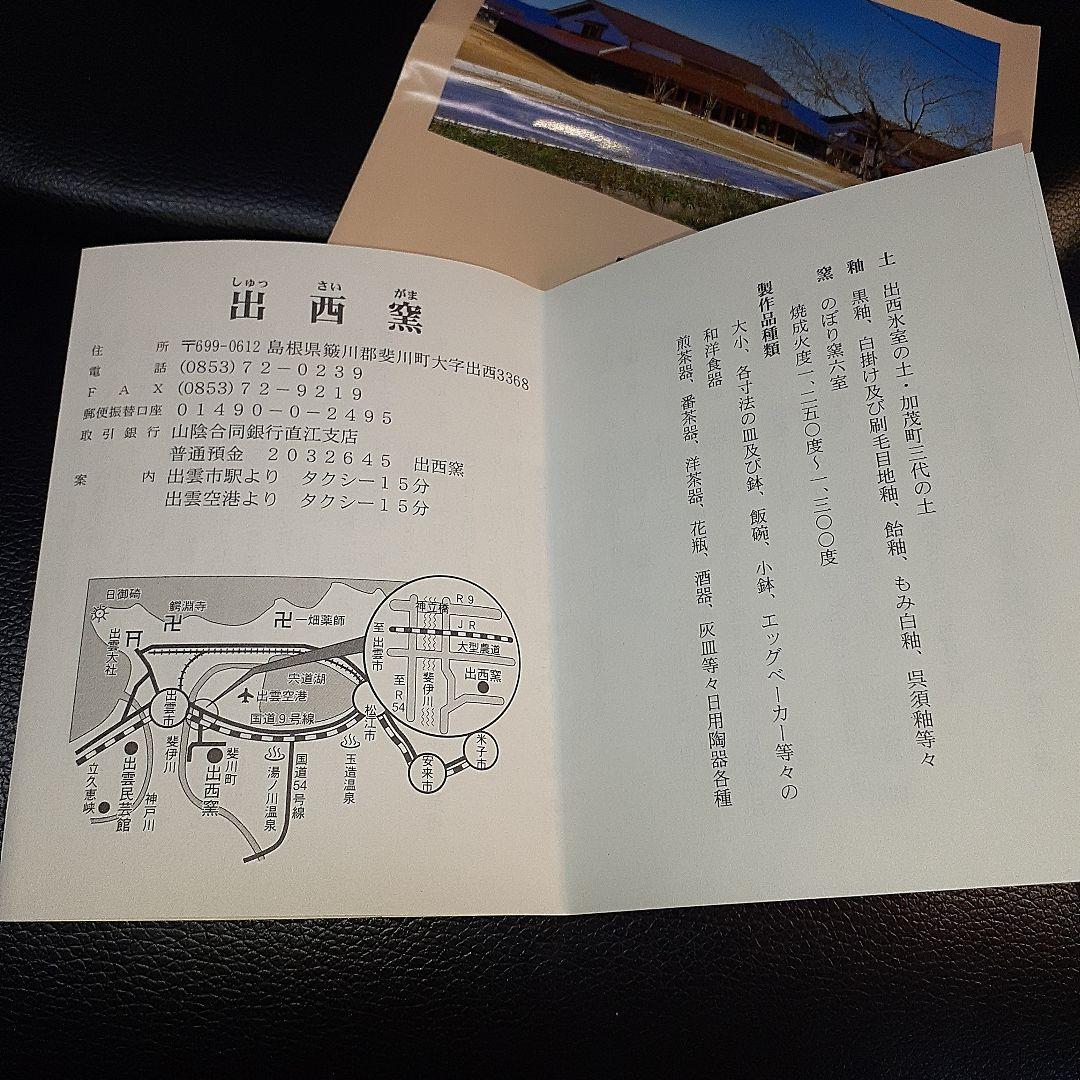 しゅっ さい がま
出西窯
住所 〒699-0612 島根県簸川郡斐川町大字出西3368
電話 (0853)72-0239
FAX (0853)72-9219
郵便振替口座 01490-0-2495
取引銀行 山陰合同銀行直江支店
普通預金 2032645 出西窯
案内 出雲市駅より タクシー15分
出雲空港より タクシー15分
日御碕
鰐淵寺
卍
卍一畑薬師
出雲大社
宍道湖
出雲空港
国道9号線
出雲市
松江市
安来市
米子市
斐伊川
斐川町
出西窯
湯ノ川温泉
国道54号線
玉造温泉
立久恵峡
出雲民芸館
神戸川
R9
JR
大型農道
至出雲市
至R54
斐伊川
出西窯
土 出西氷室の土・加茂町三代の土
釉 黒釉、白掛け及び刷毛目地釉、飴釉、もみ白釉、呉須釉等々
窯 のぼり窯六室
焼成火度一、二五〇度〜一、三〇〇度
製作品種類
大小、各寸法の皿及び鉢、飯碗、小鉢、エッグベーカー等々の
和洋食器
煎茶器、番茶器、洋茶器、花瓶、酒器、灰皿等々日用陶器各種